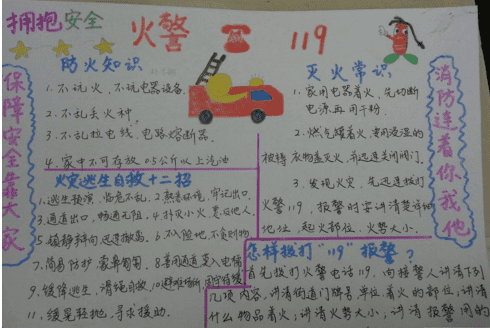 拥抱安全
火警 119
保障安全靠大家
防火知识
1.不玩火,不玩电器设备.
2.不乱丢火种,
3.不乱拉电线,电路熔断器.
4.家中不可存放 0.5公斤以上汽油
火灾逃生自救十二招
1.逃生预演,临危不乱. 2.熟悉环境,牢记出口.
3.通道出口,畅通无阻. 4.扑灭小火,惠及他人.
5.镇静辨向,迅速撤离. 6.不入险地,不贪财物.
7.简易防护,蒙鼻匍匐. 8.善用通道,莫入电梯
9.缓降逃生,滑绳自救. 10.避难场所,固守待援
11.缓晃轻抛,寻求援助.
灭火常识
1.家用电器着火,先切断
电源再用干粉.
2.燃气罐着火,要用浸湿的
被褥 衣物盖灭火,并迅速关闭阀门.
3.发现火灾,先迅速拨打
火警119,报警时要讲清楚详细
地址,起火部位,火势大小.
消防连着你我他
怎样拨打"119"报警?
首先拨打火警电话119,向接警人讲清下列
几项内容,讲清街道门牌号单位着火的部位,讲清
什么物品着火;讲清火势大小;讲清报警用的